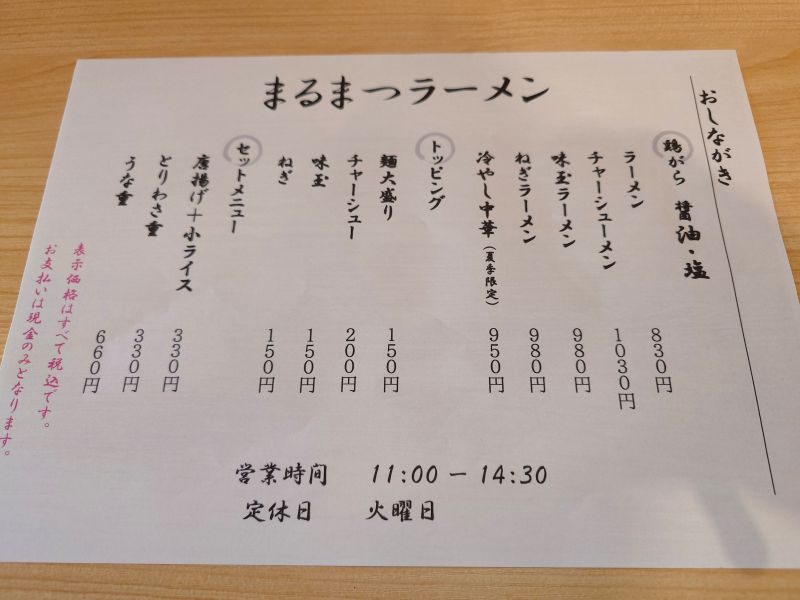 まるまつラーメン
おしながき
鶏がら 醤油・塩
ラーメン 830円
チャーシューメン 1030円
味玉ラーメン 980円
ねぎラーメン 980円
冷やし中華(夏季限定) 950円
トッピング
麺大盛り 150円
チャーシュー 200円
味玉 150円
ねぎ 150円
セットメニュー
唐揚げ+小ライス 330円
とりわさ重 330円
うな重 660円
表示価格はすべて税込です。
お支払いは現金のみとなります。
営業時間 11:00 ー 14:30
定休日 火曜日